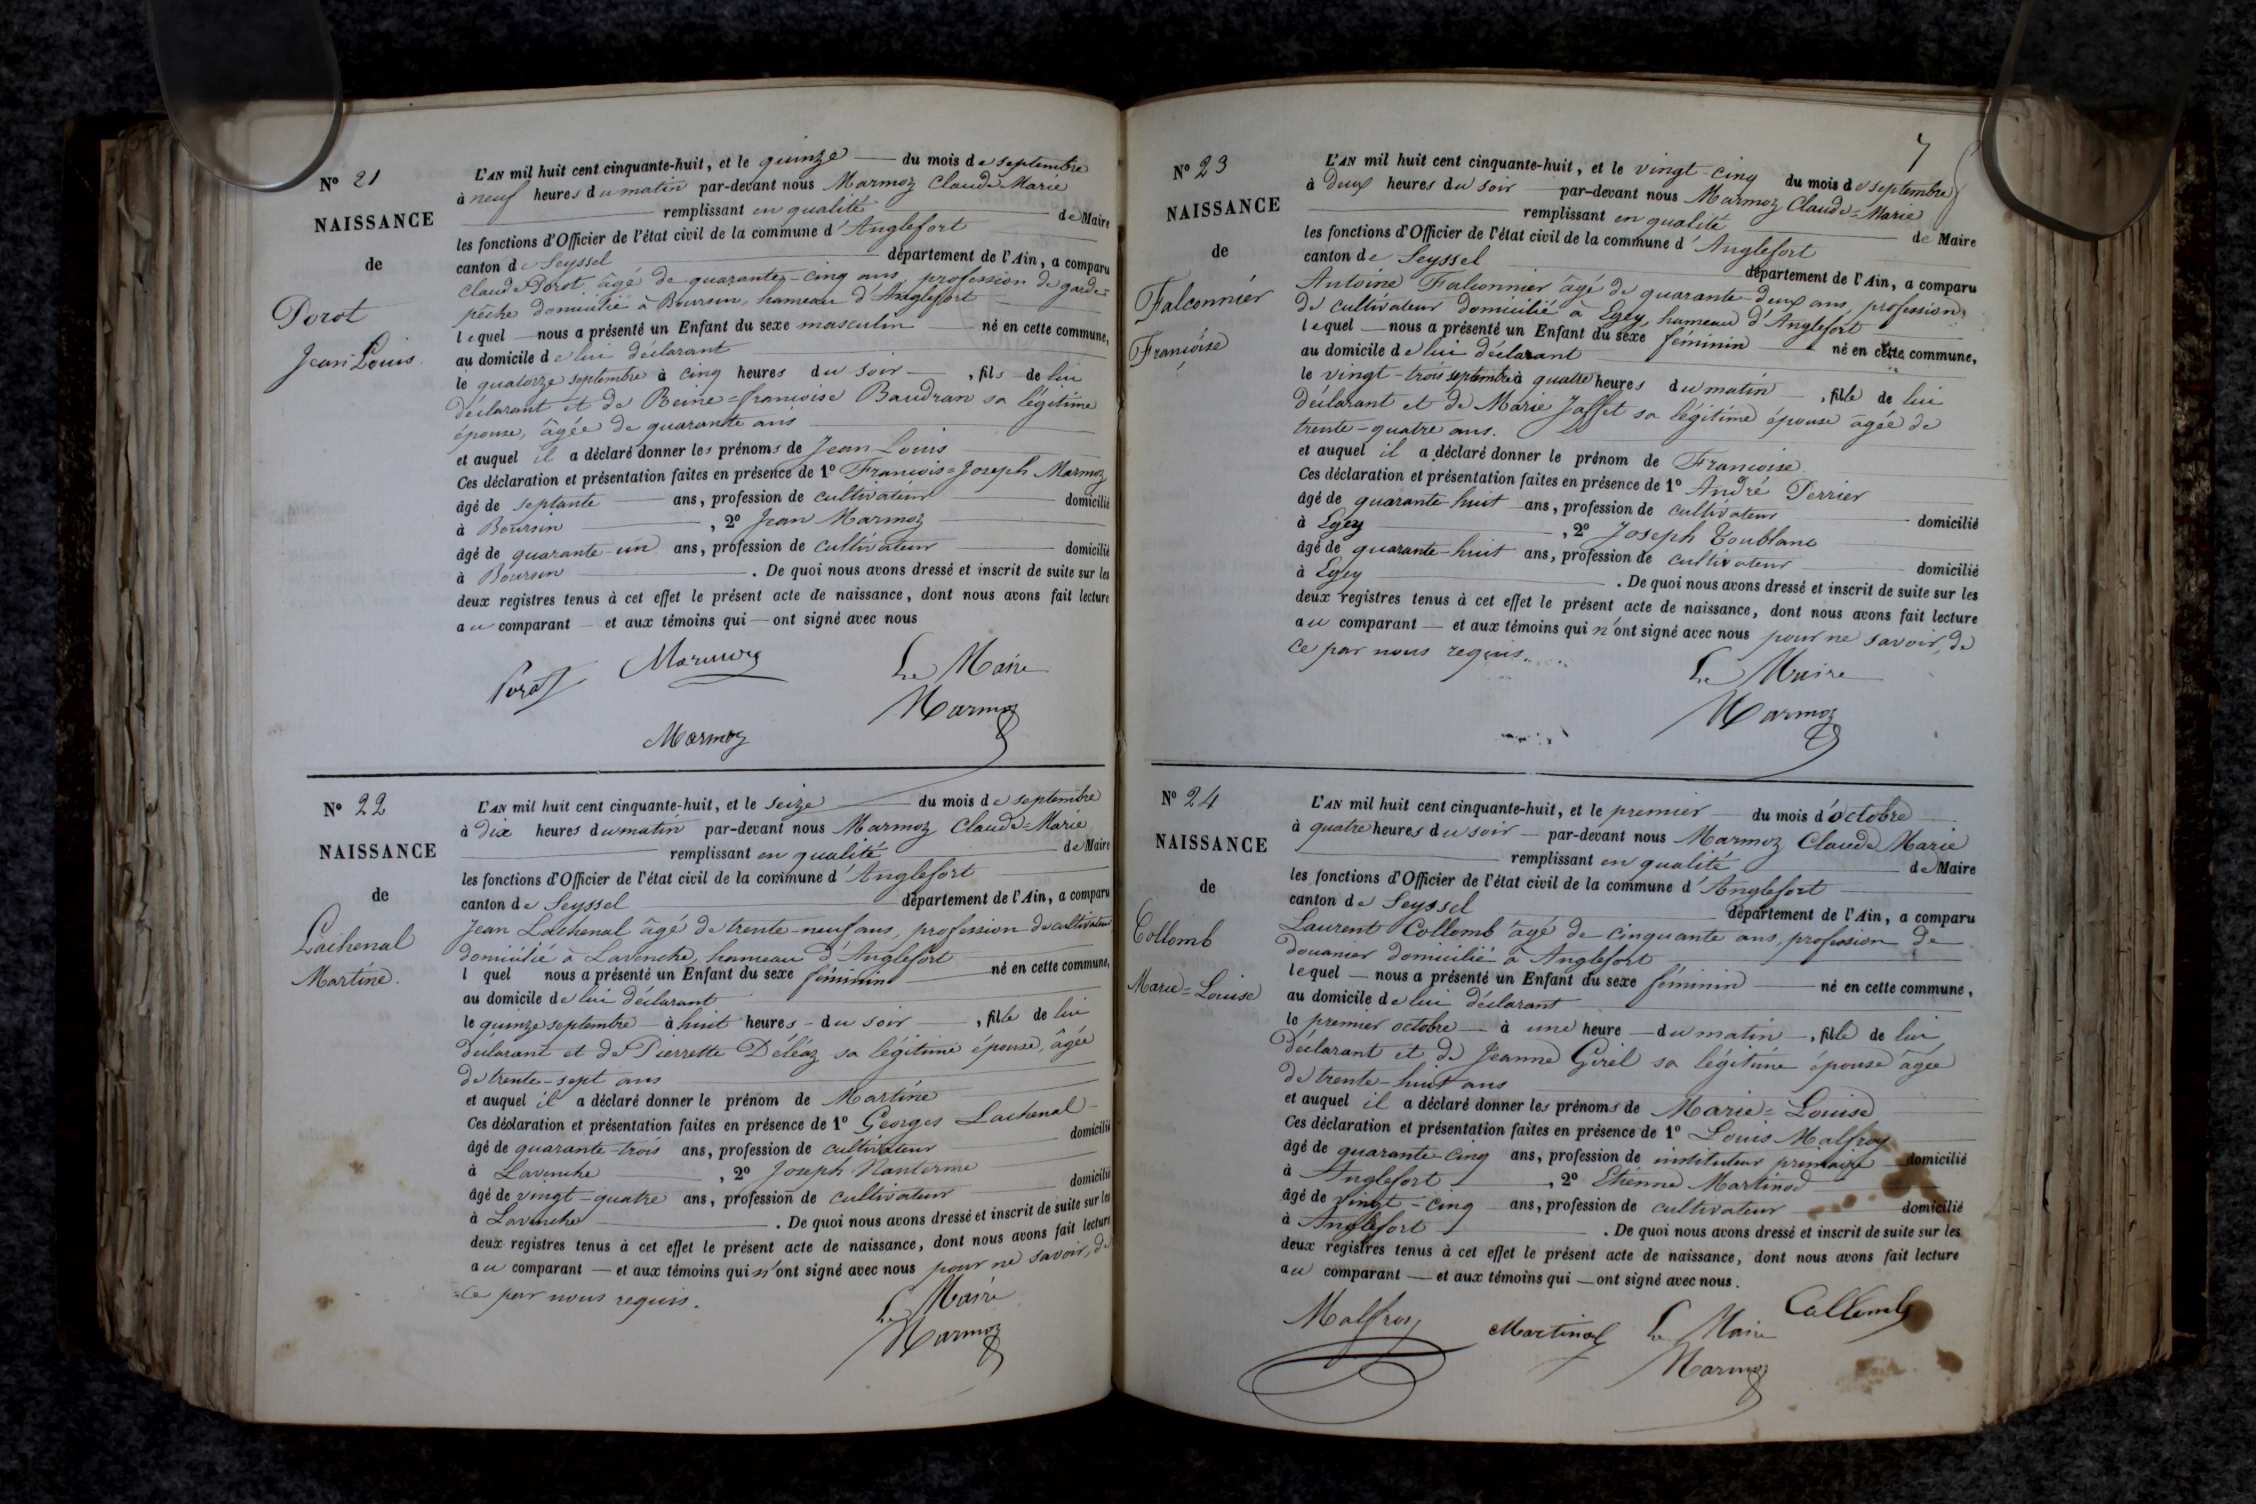 N° 21
NAISSANCE
de
Porot
Jean Louis.
L'AN mil huit cent cinquante-huit, et le quinze du mois de septembre
à neuf heures du matin par-devant nous Marmoz Claude Marie
remplissant en qualité de Maire
les fonctions d'Officier de l'état civil de la commune d'Anglefort
canton de Seyssel département de l'Ain, a comparu
Claude Porot, âgé de quarante-cinq ans, profession de garde-
pêche domicilié à Boursin, hameau d'Anglefort
lequel nous a présenté un Enfant du sexe masculin né en cette commune,
au domicile de lui déclarant
le quatorze septembre à cinq heures du soir, fils de lui
déclarant et de Reine=francoise Baudran sa légitime
épouse, âgée de quarante ans
et auquel il a déclaré donner les prénoms de Jean Louis
Ces déclaration et présentation faites en présence de 1° Francois=Joseph Marmoz
âgé de septante ans, profession de cultivateur domicilié
à Boursin, 2° Jean Marmoz
âgé de quarante-un ans, profession de cultivateur domicilié
à Boursin. De quoi nous avons dressé et inscrit de suite sur les
deux registres tenus à cet effet le présent acte de naissance, dont nous avons fait lecture
au comparant et aux témoins qui ont signé avec nous
Porot Marmoz Le Maire
Marmoz
Marmoz
N° 22
NAISSANCE
de
Lachenal
Martine.
L'AN mil huit cent cinquante-huit, et le seize du mois de septembre
à dix heures du matin par-devant nous Marmoz Claude=Marie
remplissant en qualité de Maire
les fonctions d'Officier de l'état civil de la commune d'Anglefort
canton de Seyssel département de l'Ain, a comparu
Jean Lachenal âgé de trente-neuf ans, profession de cultivateur
domicilié à Lavenche, hameau d'Anglefort
l quel nous a présenté un Enfant du sexe féminin né en cette commune,
au domicile de lui déclarant
le quinze septembre à huit heures du soir, fille de lui
déclarant et de Pierrette Déléaz sa légitime épouse, âgée
de trente-sept ans
et auquel il a déclaré donner le prénom de Martine
Ces déclaration et présentation faites en présence de 1° Georges Lachenal
âgé de quarante-trois ans, profession de cultivateur domicilié
à Lavenche, 2° Joseph Nanterme
âgé de vingt-quatre ans, profession de cultivateur domicilié
à Lavenche. De quoi nous avons dressé et inscrit de suite sur les
deux registres tenus à cet effet le présent acte de naissance, dont nous avons fait lecture
au comparant et aux témoins qui n'ont signé avec nous pour ne savoir, de
ce par nous requis.
Le Maire
Marmoz
7
N° 23
NAISSANCE
de
Falconnier
Françoise
L'AN mil huit cent cinquante-huit, et le vingt-cinq du mois de septembre
à deux heures du soir par-devant nous Marmoz Claude=Marie
remplissant en qualité de Maire
les fonctions d'Officier de l'état civil de la commune d'Anglefort
canton de Seyssel département de l'Ain, a comparu
Antoine Falconnier âgé de quarante-deux ans, profession
de cultivateur domicilié à Egey, hameau d'Anglefort
lequel nous a présenté un Enfant du sexe féminin né en cette commune,
au domicile de lui déclarant
le vingt-trois septembre à quatre heures du matin, fille de lui
déclarant et de Marie Jaffet sa légitime épouse âgée de
trente-quatre ans.
et auquel il a déclaré donner le prénom de Francoise
Ces déclaration et présentation faites en présence de 1° André Perrier
âgé de quarante-huit ans, profession de cultivateur domicilié
à Egey, 2° Joseph Toublanc
âgé de quarante-huit ans, profession de cultivateur domicilié
à Egey. De quoi nous avons dressé et inscrit de suite sur les
deux registres tenus à cet effet le présent acte de naissance, dont nous avons fait lecture
au comparant et aux témoins qui n'ont signé avec nous pour ne savoir, de
ce par nous requis.
Le Maire
Marmoz
N° 24
NAISSANCE
de
Collomb
Marie=Louise
L'AN mil huit cent cinquante-huit, et le premier du mois d'octobre
à quatre heures du soir par-devant nous Marmoz Claude Marie
remplissant en qualité de Maire
les fonctions d'Officier de l'état civil de la commune d'Anglefort
canton de Seyssel département de l'Ain, a comparu
Laurent Collomb âgé de cinquante ans, profession de
douanier domicilié à Anglefort
lequel nous a présenté un Enfant du sexe féminin né en cette commune,
au domicile de lui déclarant
le premier octobre à une heure du matin, fille de lui
déclarant et de Jeanne Girel sa légitime épouse âgée
de trente-huit ans
et auquel il a déclaré donner les prénoms de Marie=Louise
Ces déclaration et présentation faites en présence de 1° Louis Malfroy
âgé de quarante-cinq ans, profession de instituteur primaire domicilié
à Anglefort, 2° Etienne Martinod
âgé de vingt-cinq ans, profession de cultivateur domicilié
à Anglefort. De quoi nous avons dressé et inscrit de suite sur les
deux registres tenus à cet effet le présent acte de naissance, dont nous avons fait lecture
au comparant et aux témoins qui ont signé avec nous.
Malfroy Martinod Le Maire Collomb
Marmoz